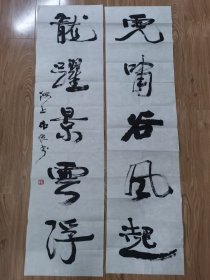 虎啸谷风起
龍躍景雲浮